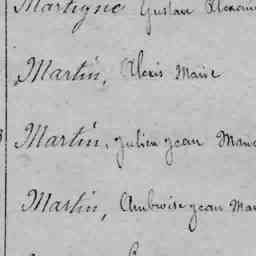 Martigné Gustave
Martin, Alexis Marie
Martin, Julien Jean
Martin, Ambroise Jean